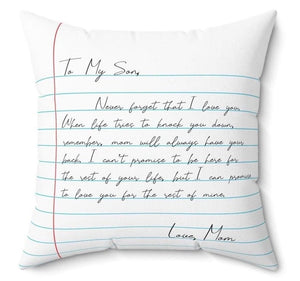 To My Son,
Never forget that I love you.
When life tries to knock you down,
remember, mom will always have your
back. I can't promise to be here for
the rest of your life, but I can promise
to love you for the rest of mine.
Love, Mom